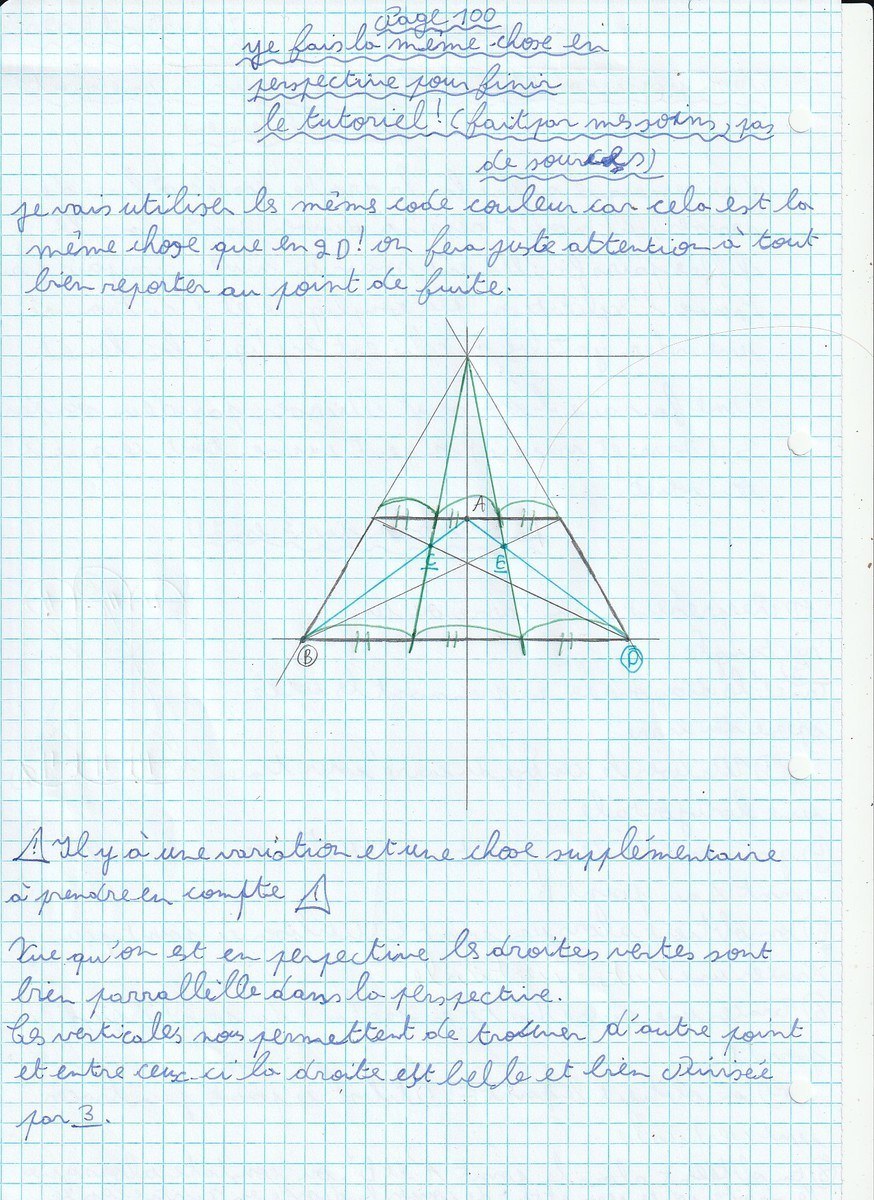 Page 100
je fais la même chose en
perspective pour finir
le tutoriel! (fait par mes soins, pas
de sources)
je vais utiliser les mêmes code couleur car cela est la
même chose que en 2D! on fera juste attention à tout
bien reporter au point de fuite.
A
C E
B D
⚠ Il y à une variation et une chose supplémentaire
à prendre en compte ⚠
Vue qu'on est en perpective les droites vertes sont
bien parralléllé dans la perspective.
Ces verticales nous permettent de trouver d'autre point
et entre ceux-ci la droite est belle et bien divisée
par 3.